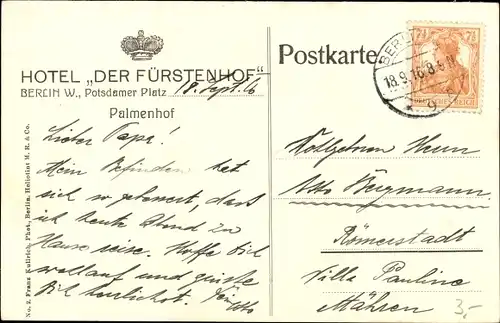 HOTEL „DER FÜRSTENHOF"
BERLIN W., Potsdamer Platz
18. Sept. 16
Palmenhof
Lieber Papa!
Mein Befinden hat
sich so gebessert, dass
ich heute Abend zu
Hause reise. Hoffe Dich
wohlauf und grüsse
Dich herzlichst. Dein Otto
No. 2. Franz Kullrich, Phot., Berlin. Heliotint M. R. & Co.
Postkarte
BERLIN
18.9.16.8-9N
* 9
7½ 7½
DEUTSCHES REICH
Wohlgeboren Herrn
Otto Bergmann
Römerstadt
Villa Pauline
Mähren
3,-